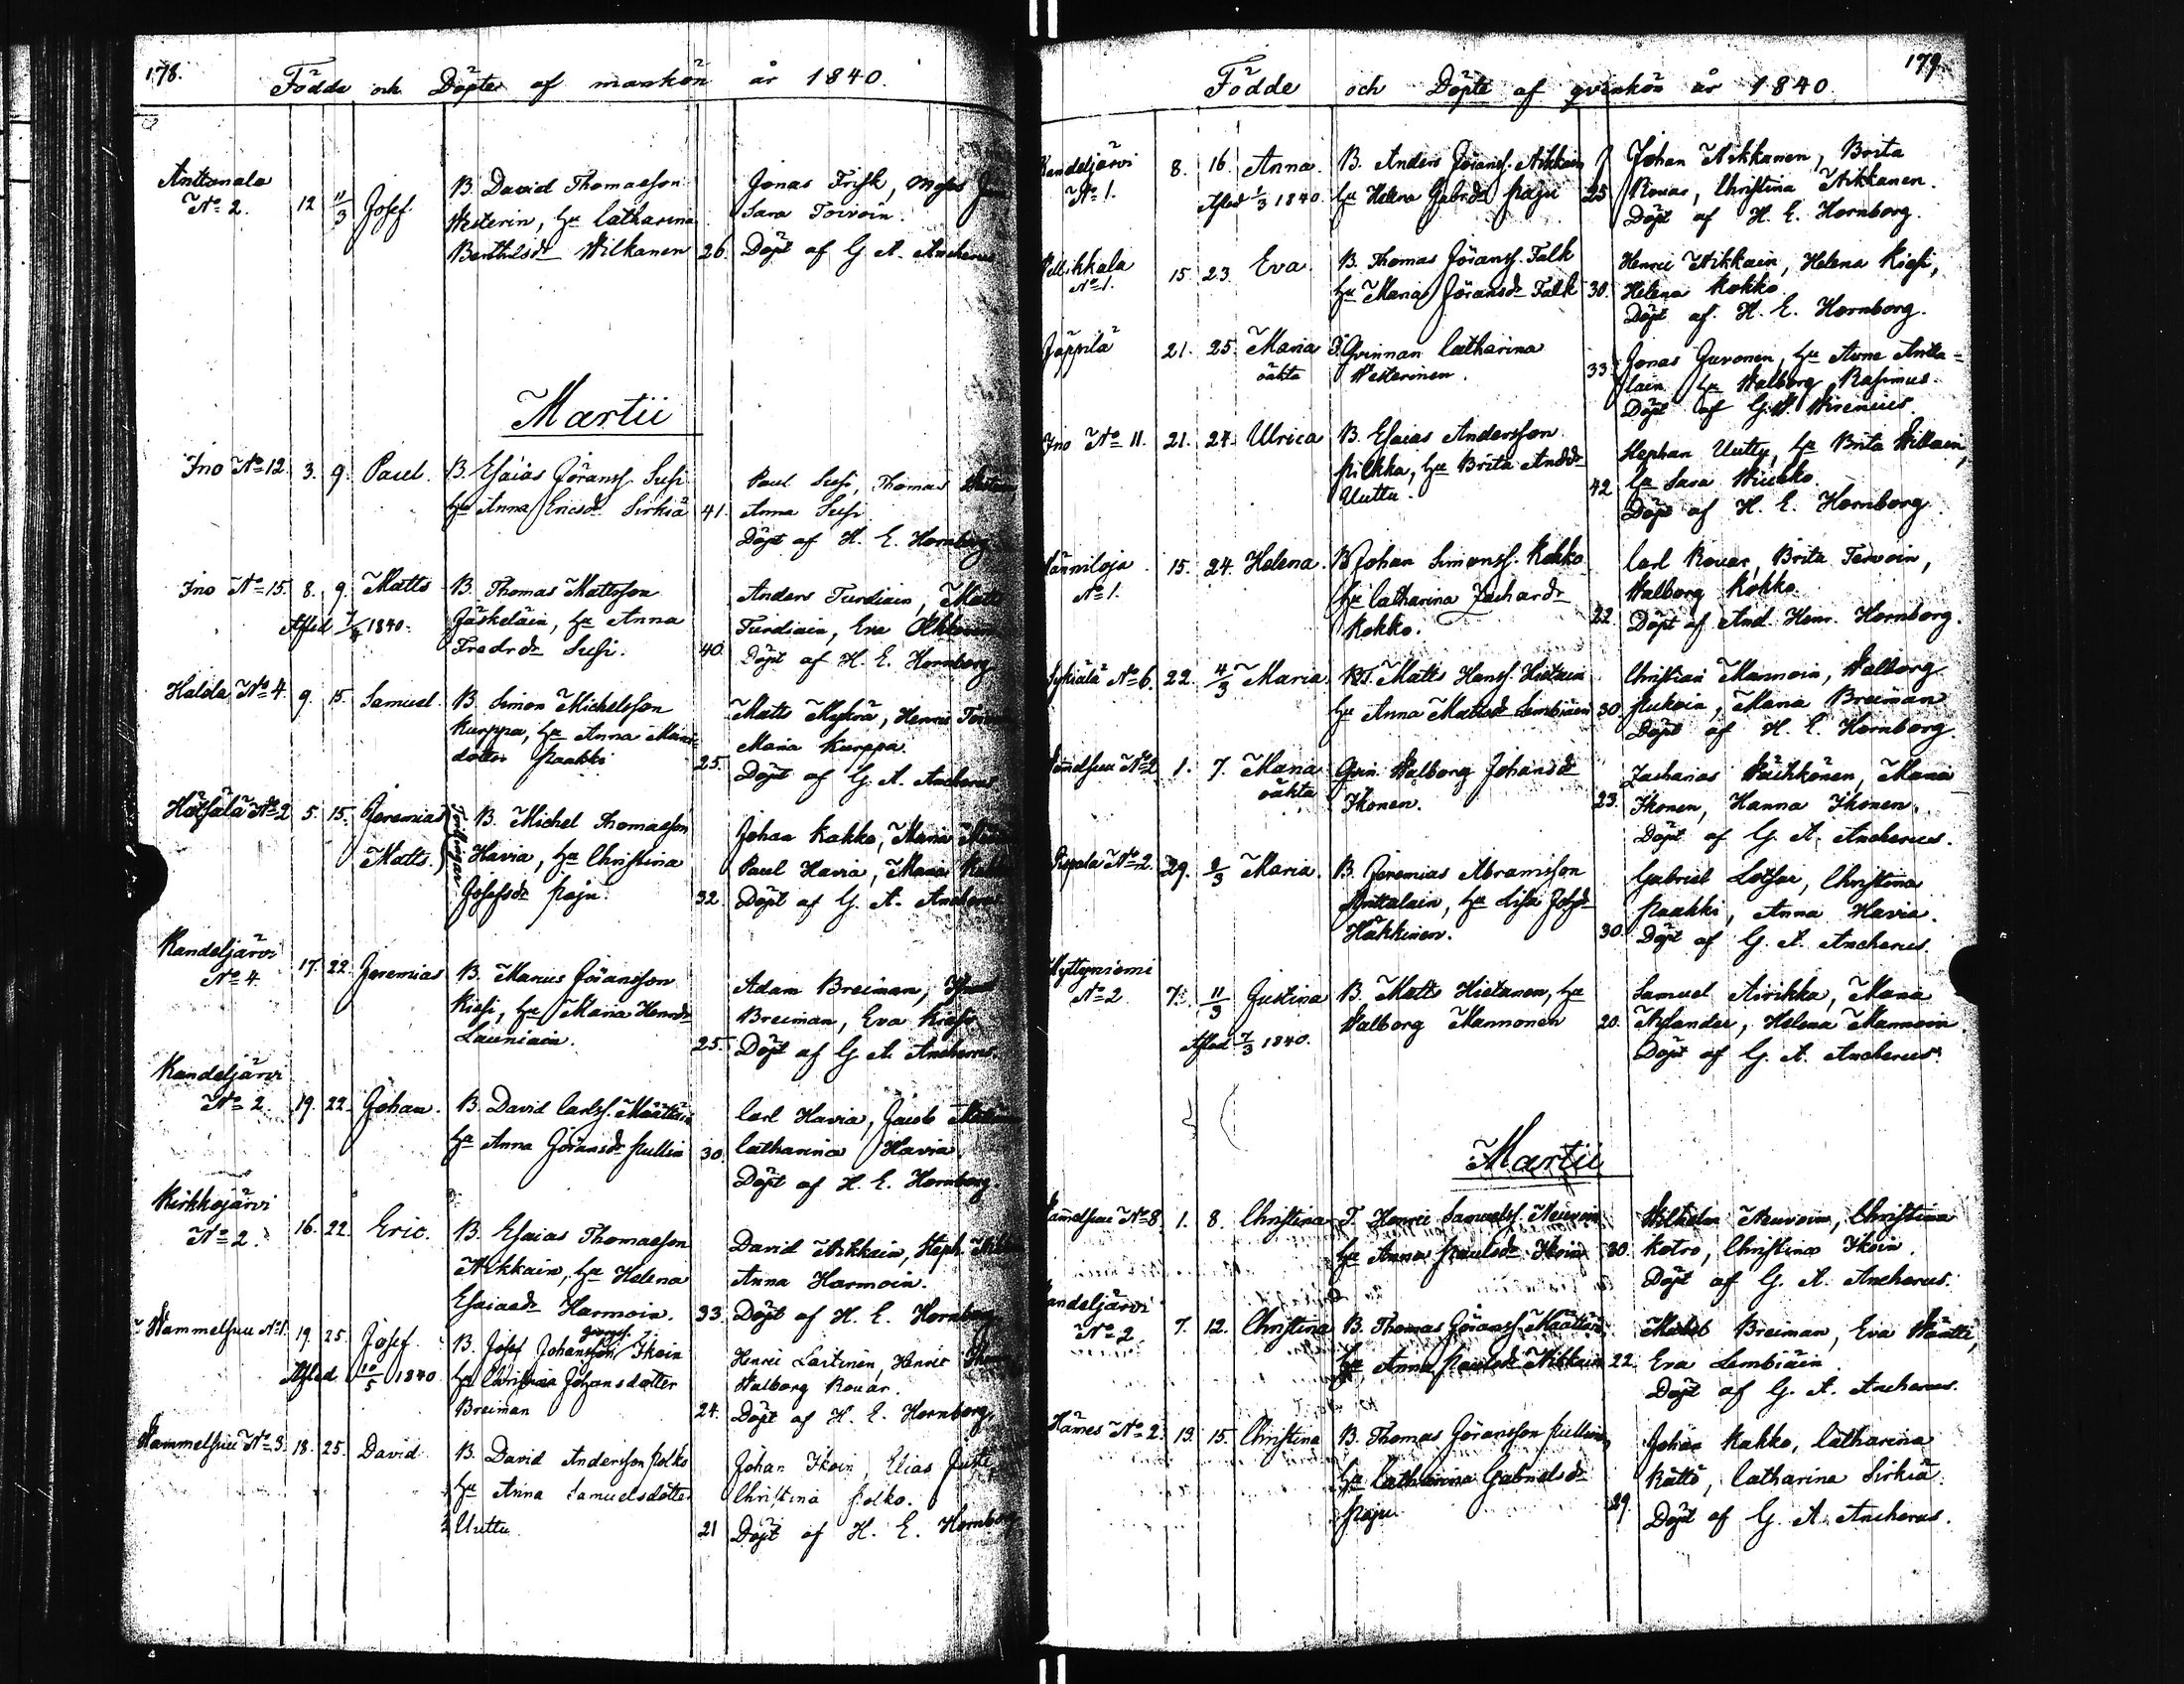 178.
Födde och Döpte af mankön år 1840.
Anttanala
No 2. 12 11/3 Josef.
B. David Thomasson
Westerin, hu Catharina
Berthilsdr Wilkanen 26.
Jonas Frisk, Moses
Sara Toivoin.
Döpt af G. A. Ancherus
Martii
Ino No 12. 3. 9. Paul.
B. Esaias Göranss. Susi
hu Anna Ericsdr Sirkiä 41.
Paul Susi, Thomas
Anna Susi
Döpt af H. E. Hornborg.
Ino No 15. 8. 9. Matts
Afled 1840.
B. Thomas Mattsson
Jäskeläin, hu Anna
Fredrdr Susi. 40.
Anders Turdiain, Matts
Turdiain, Eva
Döpt af H. E. Hornborg
Halola No 4. 9. 15. Samuel.
B. Simon Michelsson
Kurppa, hu Anna
dotter Paakki 25.
Matts Myhrä, Henric
Maria Kurppa.
Döpt af G. A. Ancherus
Hätjälä No 2 5. 15. Jeremias
Matts. Tvillingar
B. Michel Thomasson
Havia, hu Christina
Josefsdr Paju. 32.
Johan Kakko, Maria
Paul Havia, Maria
Döpt af G. A. Ancherus
Kandeljärvi
No 4. 17. 22. Jeremias
B. Marcus Göransson
Kiesi, hu Maria Henrdr
Launiain. 25.
Adam Breiman,
Breiman, Eva Kiesi
Döpt af G. A. Ancherus.
Kandeljärvi
No 2. 19. 22. Johan.
B. David Carlss. Määttäin
hu Anna Göransdr Pullin 30.
Carl Havia, Jacob
Catharina Havia.
Döpt af H. E. Hornborg.
Kirkkojärvi
No 2. 16. 22. Eric.
B. Esaias Thomasson
Nikkain, hu Helena
Esaiaedr Harmoin. 33.
David Nikkain, Steph.
Anna Harmoin.
Döpt af H. E. Hornborg
Wammelsuu No 1. 19. 25. Josef.
Afled 10/5 1840
B. Josef Johansson Ikoin
hu Christina Johansdotter
Breiman 24.
Henric Lartinen, Henric
Walborg Rouar.
Döpt af H. E. Hornborg.
Wammelsuu No 3. 18. 25. David
B. David Andersson Polko
hu Anna Samuelsdotter
Uuttu 21
Johan Ikoin, Elias
Christina Polko.
Döpt af H. E. Hornborg
179.
Födde och Döpte af qvinkön år 1840.
Kandeljärvi
No 1. 8. 16. Anna.
Afled 1/3 1840.
B. Anders Göranss. Nikkain
hu Helena Gabrdr Paju 25
Johan Nikkanen, Brita
Rouar, Christina Nikkanen.
Döpt af H. E. Hornborg.
No 1. 15. 23. Eva
B. Thomas Göranss. Falk
hu Maria Göransdr Falk 30.
Henric Nikkain, Helena Kiesi,
Helena Kokko.
Döpt af H. E. Hornborg.
Jäppilä 21. 25. Maria
oäkta
Qvinnan Catharina
Westerinen. 33.
Jonas Juvonen, hu Anna Antta=
lain hu Walborg Rasimus.
Döpt af G. W. Wirenius.
Ino No 11. 21. 24. Ulrica
B. Esaias Andersson
Pilkka, hu Brita Anddr
Uuttu. 42
Stephan Uuttu, hu Brita Willain,
hu Sara
Döpt af H. E. Hornborg.
No 1. 15. 24. Helena.
B. Johan Simonss. Kokko
hu Catharina Zachardr
Kokko. 22.
Carl Rouar, Brita Tervoin,
Walborg Kokko.
Döpt af And. Henr. Hornborg.
No 6. 22. 4/3 Maria.
Matts Hanss. Hietain
hu Anna Mattsdr Lembiäin 30.
Christian Mannoin, Walborg
Pukoin, Maria Breiman
Döpt af H. E. Hornborg
Wammelsuu No 2 1. 7. Maria
oäkta
Qvin. Walborg Johansdr
Ikonen. 23.
Zacharias Päihkönen, Maria
Ikonen, Hanna Ikonen.
Döpt af G. A. Ancherus.
No 2. 29. 2/3 Maria.
B. Jeremias Abramsson
Anttalain, hu Lisa Johdr
Häkkinen. 30.
Gabriel Lotsar, Christina
Paakki, Anna Havia.
Döpt af G. A. Ancherus.
Kyttyniemi
No 2. 7. 11/3 Justina
Afled 7/3 1840.
B. Matts Hietanen, hu
Walborg Mannonen 20.
Samuel Airikka, Maria
Nylander, Helena Mannoin
Döpt af G. A. Ancherus.
Martii
Wammelsuu No 8. 1. 8. Christina
T. Henric Samuelss. Neuvoin
hu Anna Paulsdr Ikoin 30.
Wilhelm Neuvoin, Christina
Kotro, Christina Ikoin.
Döpt af G. A. Ancherus.
Kandeljärvi
No 2. 7. 12. Christina
B. Thomas Göranss. Määttäin
hu Anna Paulsdr Nikkain 22.
Breiman, Eva
Eva Lembiäin
Döpt af G. A. Ancherus.
Hämes No 2. 13. 15. Christina
B. Thomas Göransson Pullin,
hu Catharina Gabrielsdr
Paju. 29.
Johan Kakko, Catharina
Rättö, Catharina Sirkiä.
Döpt af G. A. Ancherus.